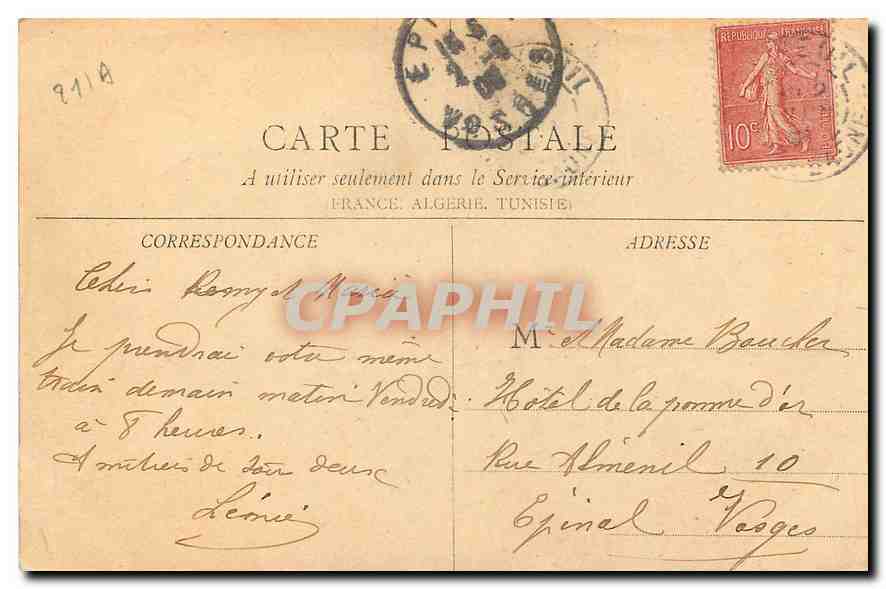 211A
EPINAL
VOSGES
REPUBLIQUE FRANÇAISE
10c
CARTE POSTALE
A utiliser seulement dans le Service intérieur
(FRANCE, ALGERIE, TUNISIE)
CORRESPONDANCE
Chers Remy et Maria
Je prendrai votre même
train demain matin Vendredi
à 8 heures.
Amitiés de tous deux
Léonie
ADRESSE
Mr et Madame Boucher
Hôtel de la pomme d'or
Rue Alménil 10
Epinal Vosges
CPAPHIL